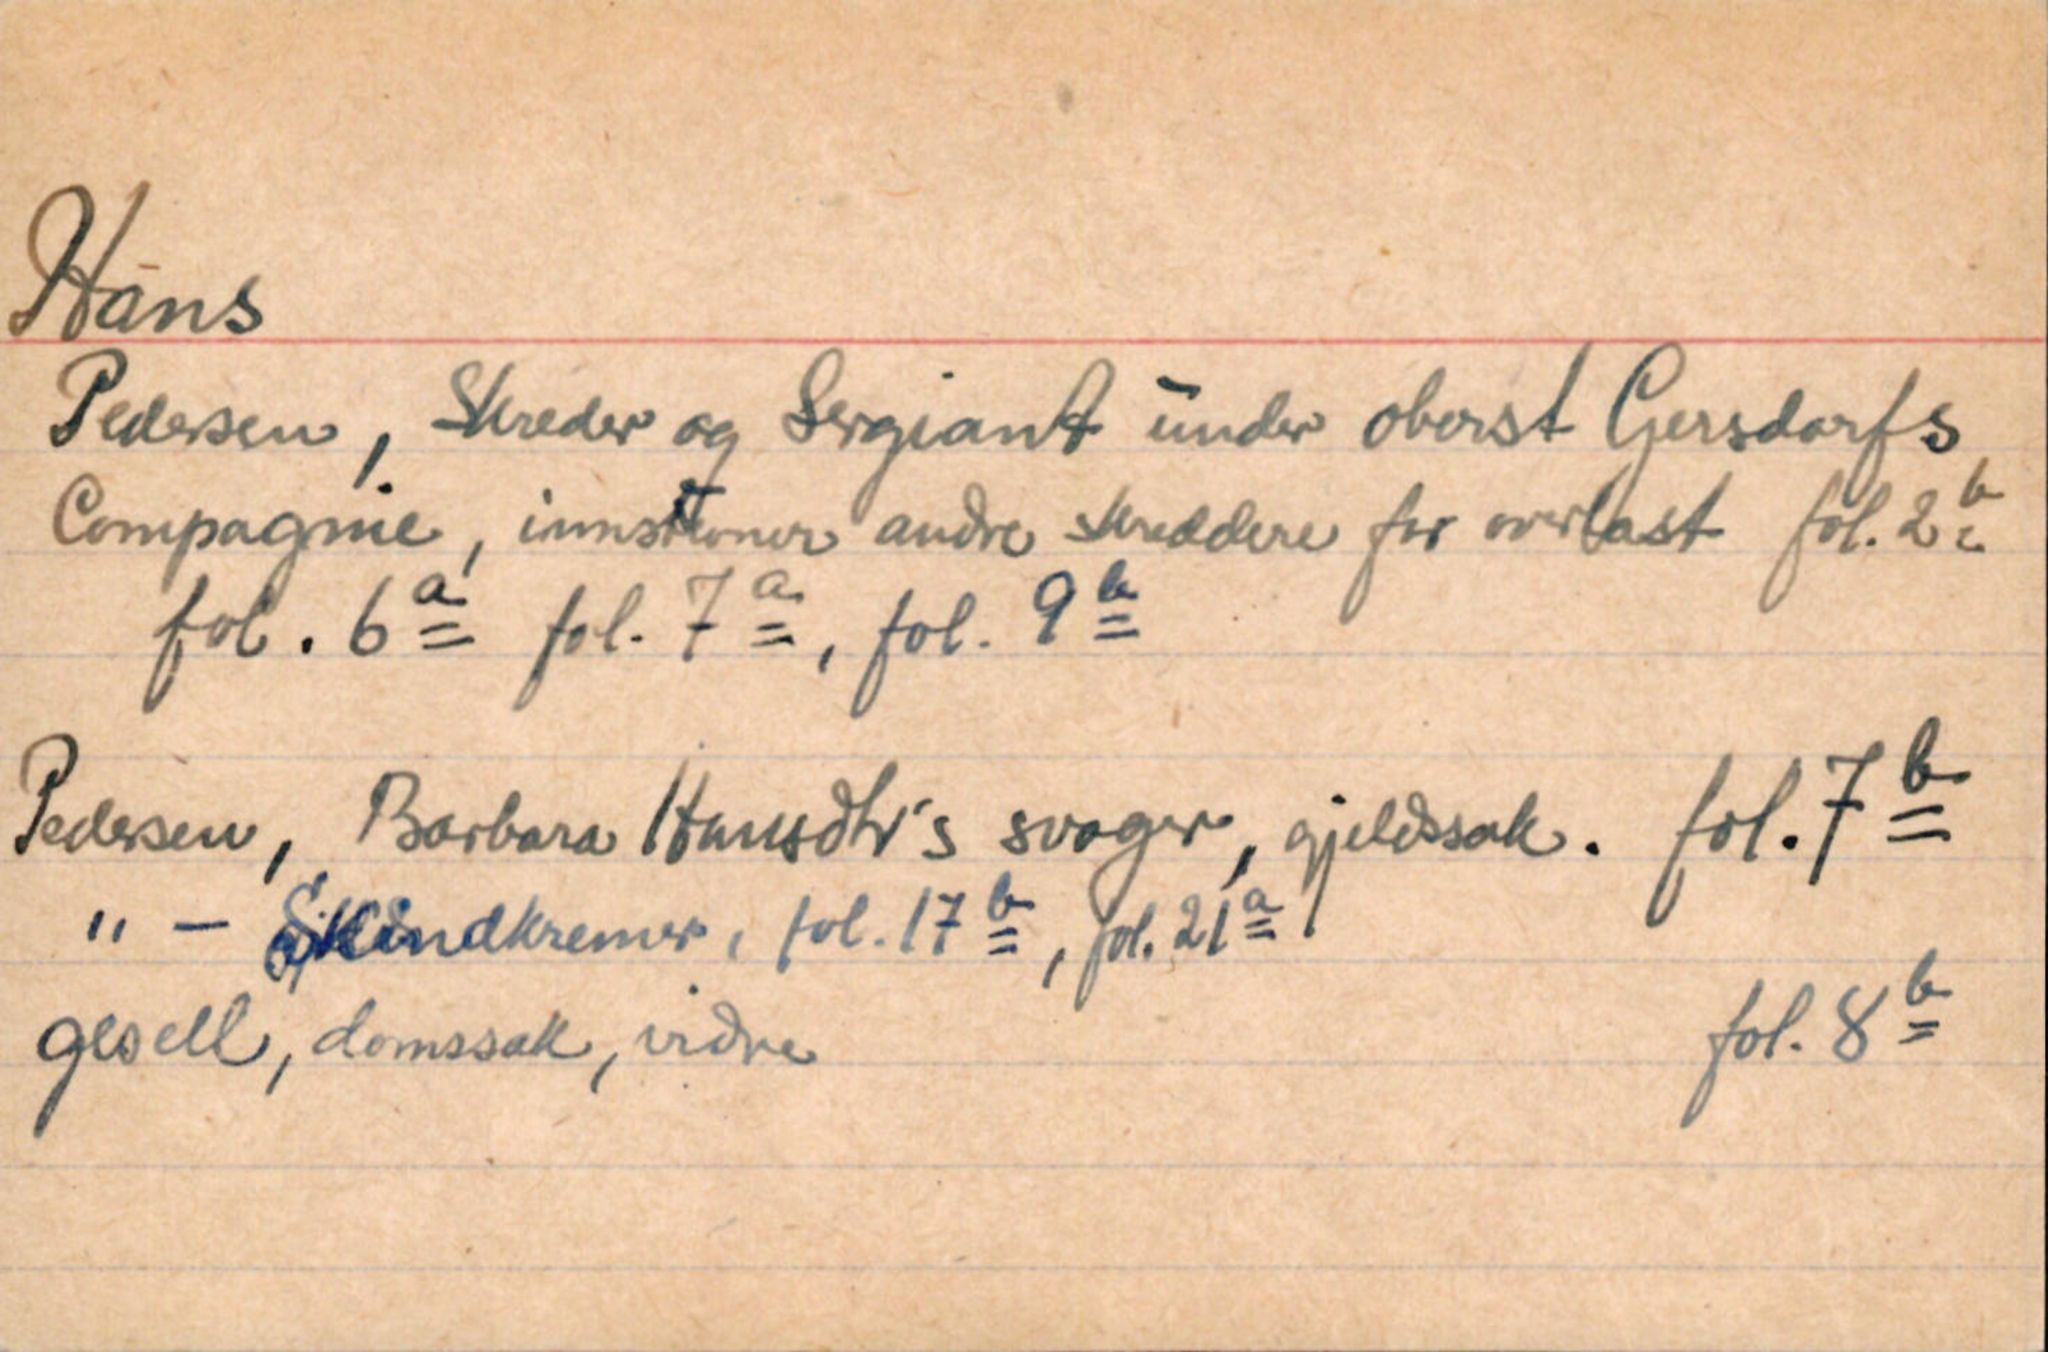 Hans
Pedersen, Skreder og Sergiant under oberst Gersdorfs
Compagnie, innstevner andre skreddere for overlast fol. 2b
fol. 6a fol. 7a, fol. 9b
Pedersen, Barbara Hansdtr's svoger, gjeldssak. fol. 7b
" - Skindkremer, fol. 17b, fol. 21a
gesell, domssak, vidne fol. 8b